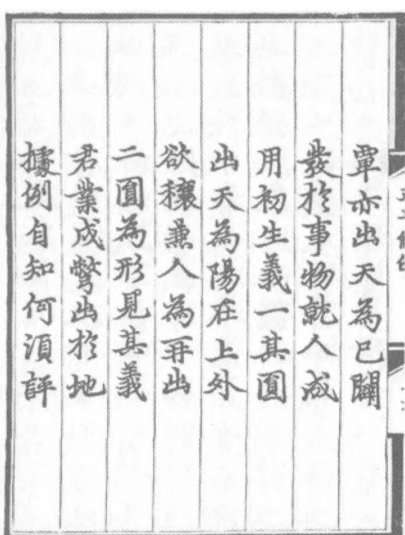 覃亦出天為已闢
發扵事物就人成
用初生義一其圓
出天為陽在上外
欲穰兼人為再出
二圓為形見其義
君業戌彆出扵地
據例自知何湏評